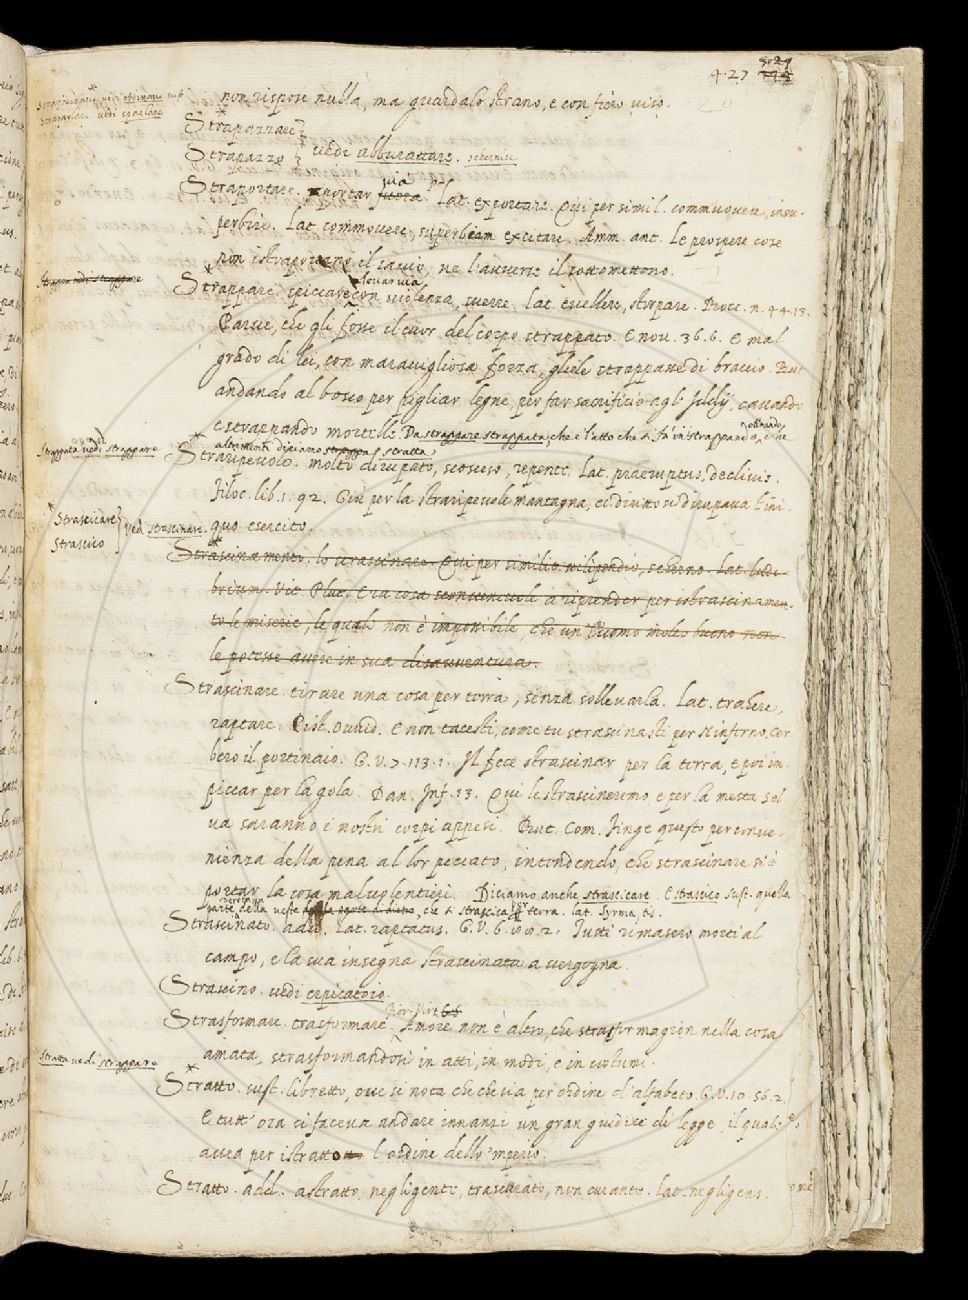 4.27
non rispose nulla, ma guardalo strano, e con fiero viso.
Strapazzare
Strapazzo vedi abburattare. schernire
via
Straportare. portar. Lat. exportare. Qui per simil. commuovere, insu-
perbire. Lat. commovere, superbiam excitare. Amm. ant. Le prospere cose
non istraportano il savio, ne l'avverse il sottomettono.
levar via
Strappare. spiccare con violenza, sverre. Lat. evellere, stirpare. Bocc. n. 44. 13.
Parve, che gli fosse il cuor del corpo strappato. E nov. 36. 6. E mal
grado di lei, con maravigliosa forza, gliele strappasse di braccio. But
andando al bosco per pigliar legne, per far sacrificio agli Iddij, cavando
e strappando mortelle. Da strappare strappata, che è l'atto che si fa in istrappando, che
altrimenti diciamo stratta
Strappata vedi strappare
Straripevole. molto dirupato, scosceso, repente. Lat. praeruptus, declivis.
Filoc. lib. 1. 92. Giù per la straripevole montagna, ec. diritto si dirupava l'ini-
quo esercito.
Strascicare
Strascico ved. strascinare.
Strascinamento. lo strascinare. Qui per similit. vilipendio, scherno. Lat. ludi-
brium. Vit. Plut. Era cosa sconvenevole a riprender per istrascinamen-
to le miserie, le quali non è impossibile, che un Vuomo molto buono non
le potesse avere in sua disavventura.
Strascinare. tirare una cosa per terra, senza sollevarla. Lat. trahere,
raptare. Pist. Ovvid. E non tacesti, come tu strascinasti per lo inferno, Cer
bero il portinaio. G. V. 7. 113. 1. Il fece strascinar per la terra, e poi im
piccar per la gola. Dan. Inf. 13. Qui le strascineremo, e per la mesta sel
va saranno i nostri corpi appesi. But. Com. Finge questo per conve-
nienza della pena al lor peccato, intendendo, che strascinare si è
portar la cosa malvolentieri. Diciamo anche strascicare. E strascico sust. quella
parte deretana della veste, che si strascica per terra. lat. syrma, tis.
Strascinato. add. Lat. raptatus. G. V. 6. 2. Tutti rimasero morti al
campo, e la sua insegna strascinata a vergogna.
Strascino. vedi erpicatoio.
Strasformare. trasformare. Fior. Virt. Amore non è altro, che strasformagion nella cosa
amata, strasformandosi in atti, in modi, e in costumi.
Stratta vedi strappare
Stratto. sust. libretto, ove si nota checchesia per ordine d'alfabeto. G. V. 10. 56. 2.
E tutt'ora ci faceva andare innanzi un gran giudice di legge, il quale
avea per istratto l'ordine dello 'mperio.
Stratto. add. astratto, negligente, trascurato, non curante. Lat. negligens.